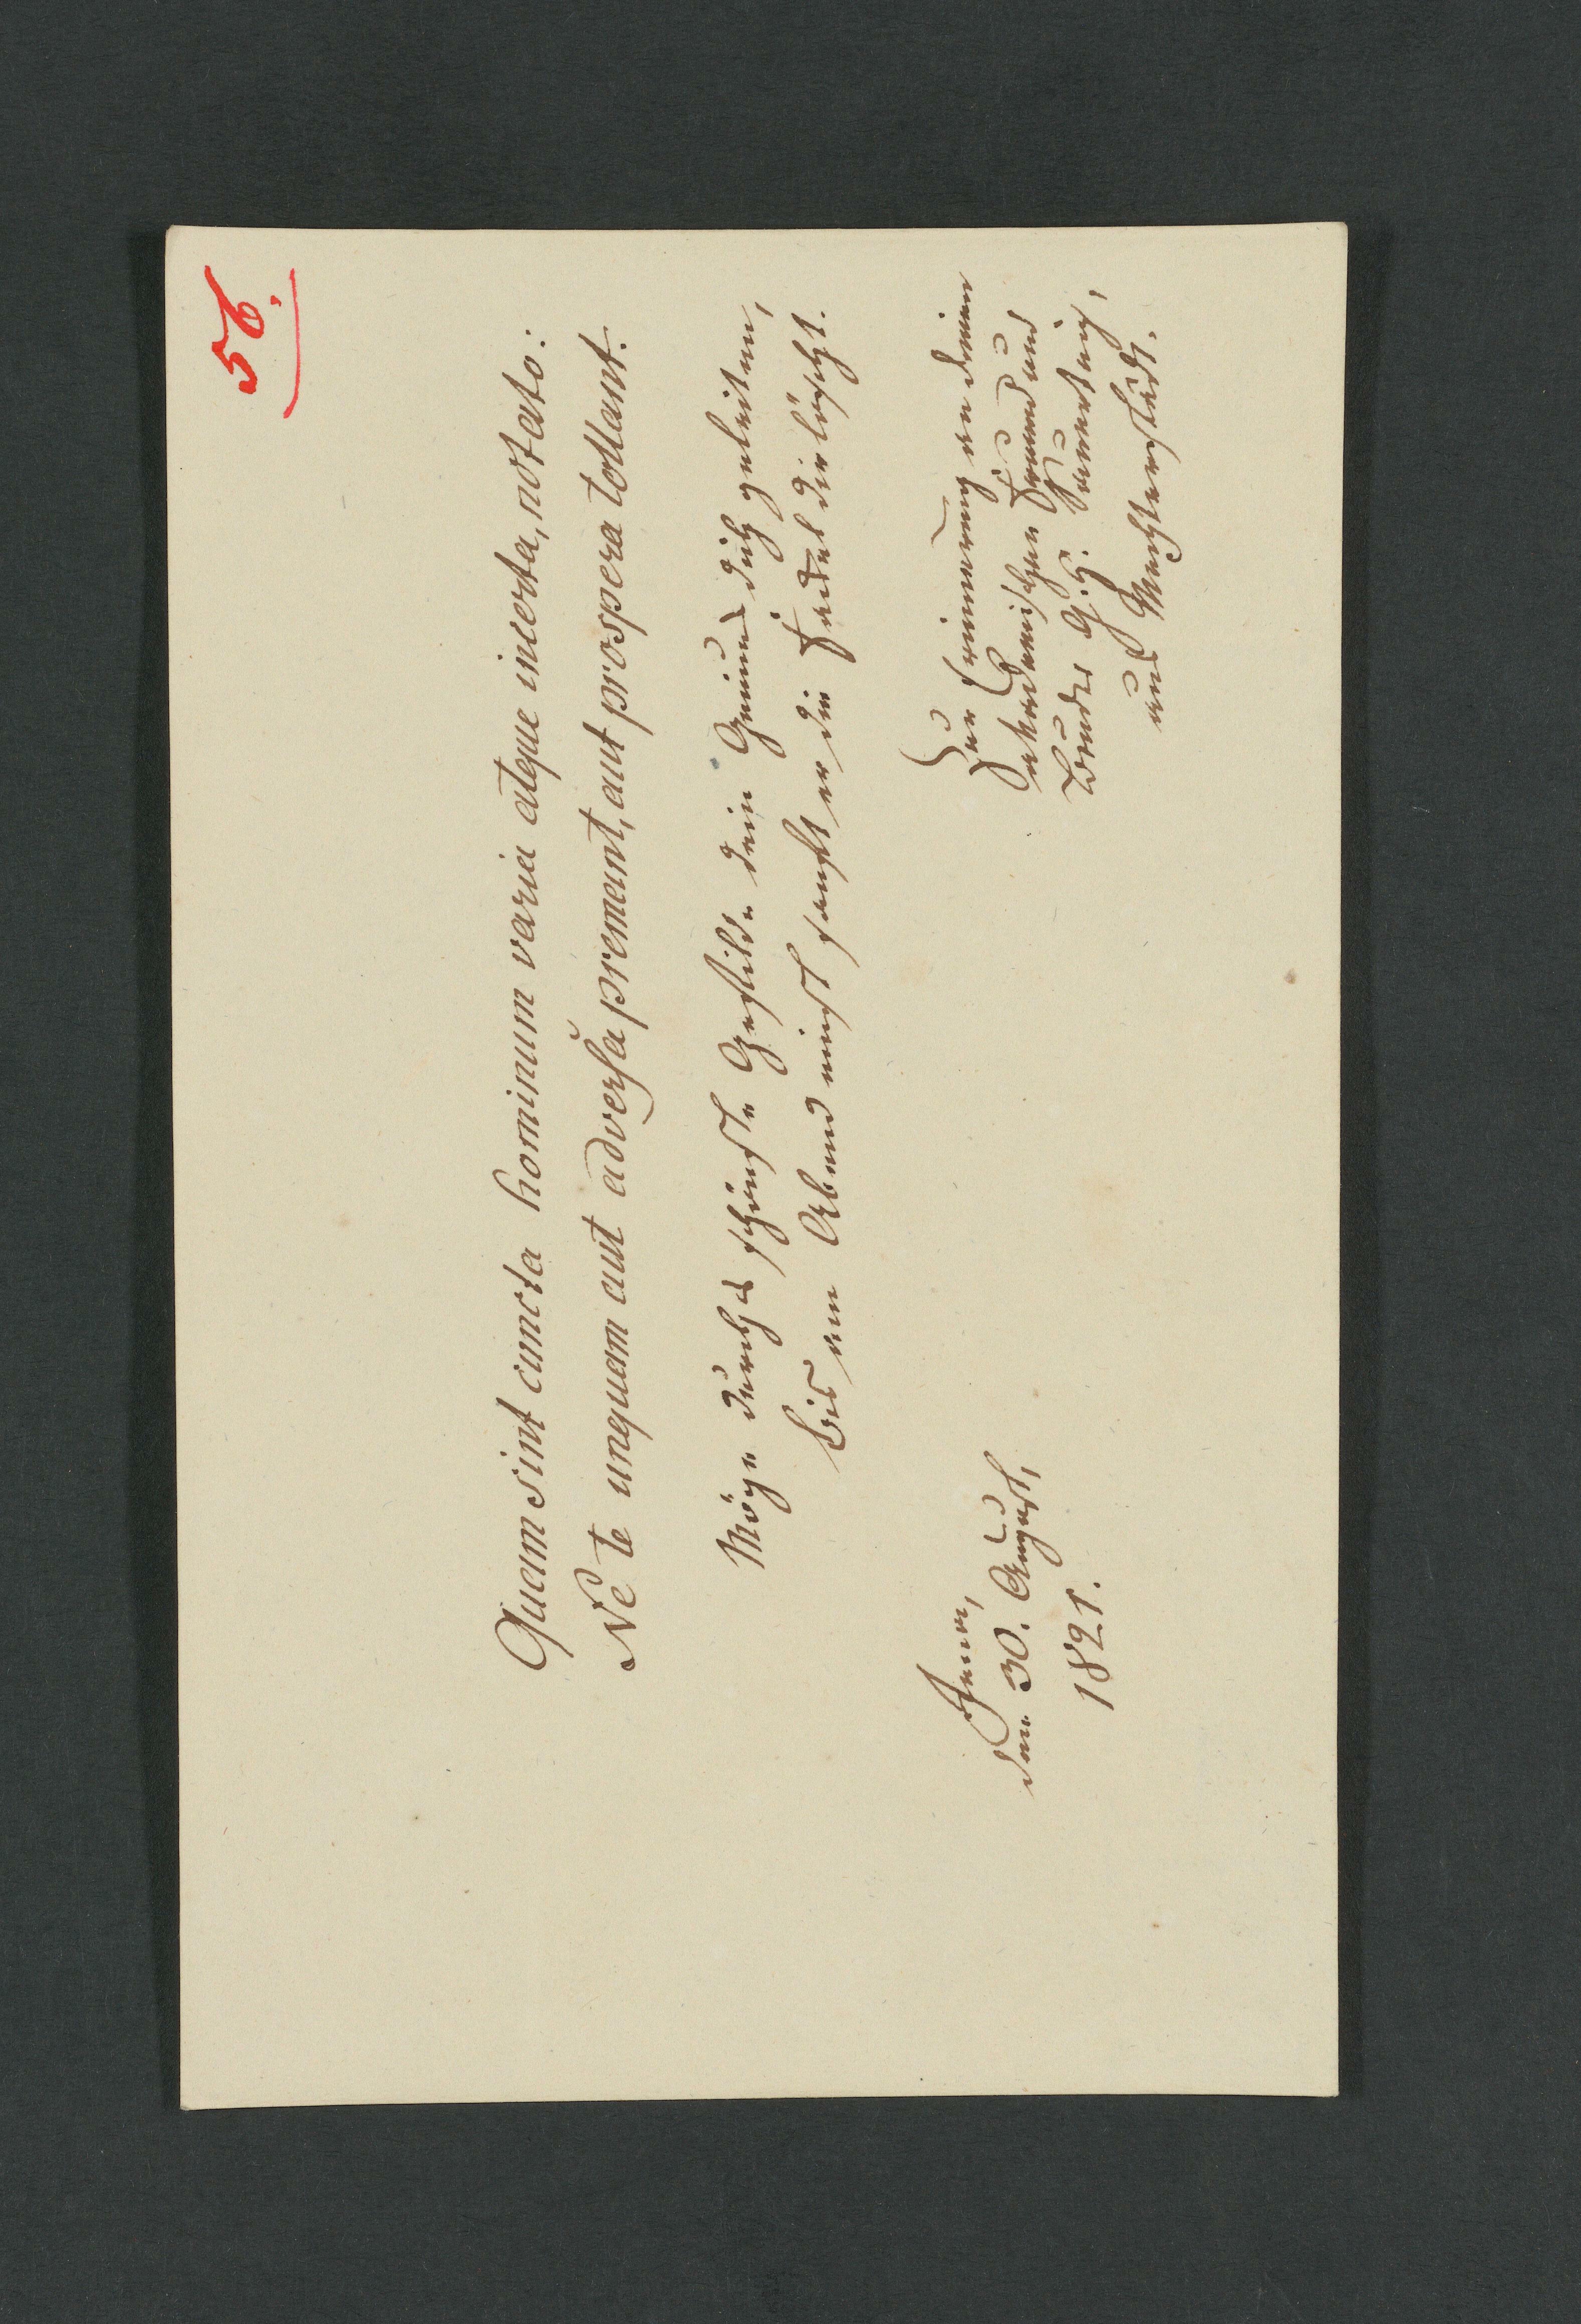 56.
Quam sint cuncta hominum varia atque incerta, notato:
Ne te unquam aut adversa premant, aut prospera tollant.
Möge durch's schönste Gefilde dein Genius dich geleiten,
bis am Abend einst sanft er die Fackel dir löscht.
Jena,
den 30. August,
1821.
Zur Erinnerung an deinen
Akademischen Freund und
Bruder G. H. Sauerteig,
aus Mechterstädt.